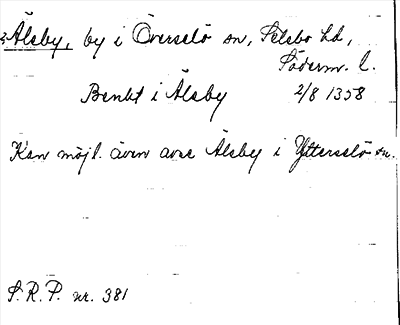 Älsby, by i Överselö sn, Selebo hd,
Söderm. l.
Benkt i Älsby 2/8 1358
Kan möjl. även avse Älsby i Ytterselö sn.
S.R.P. nr. 381